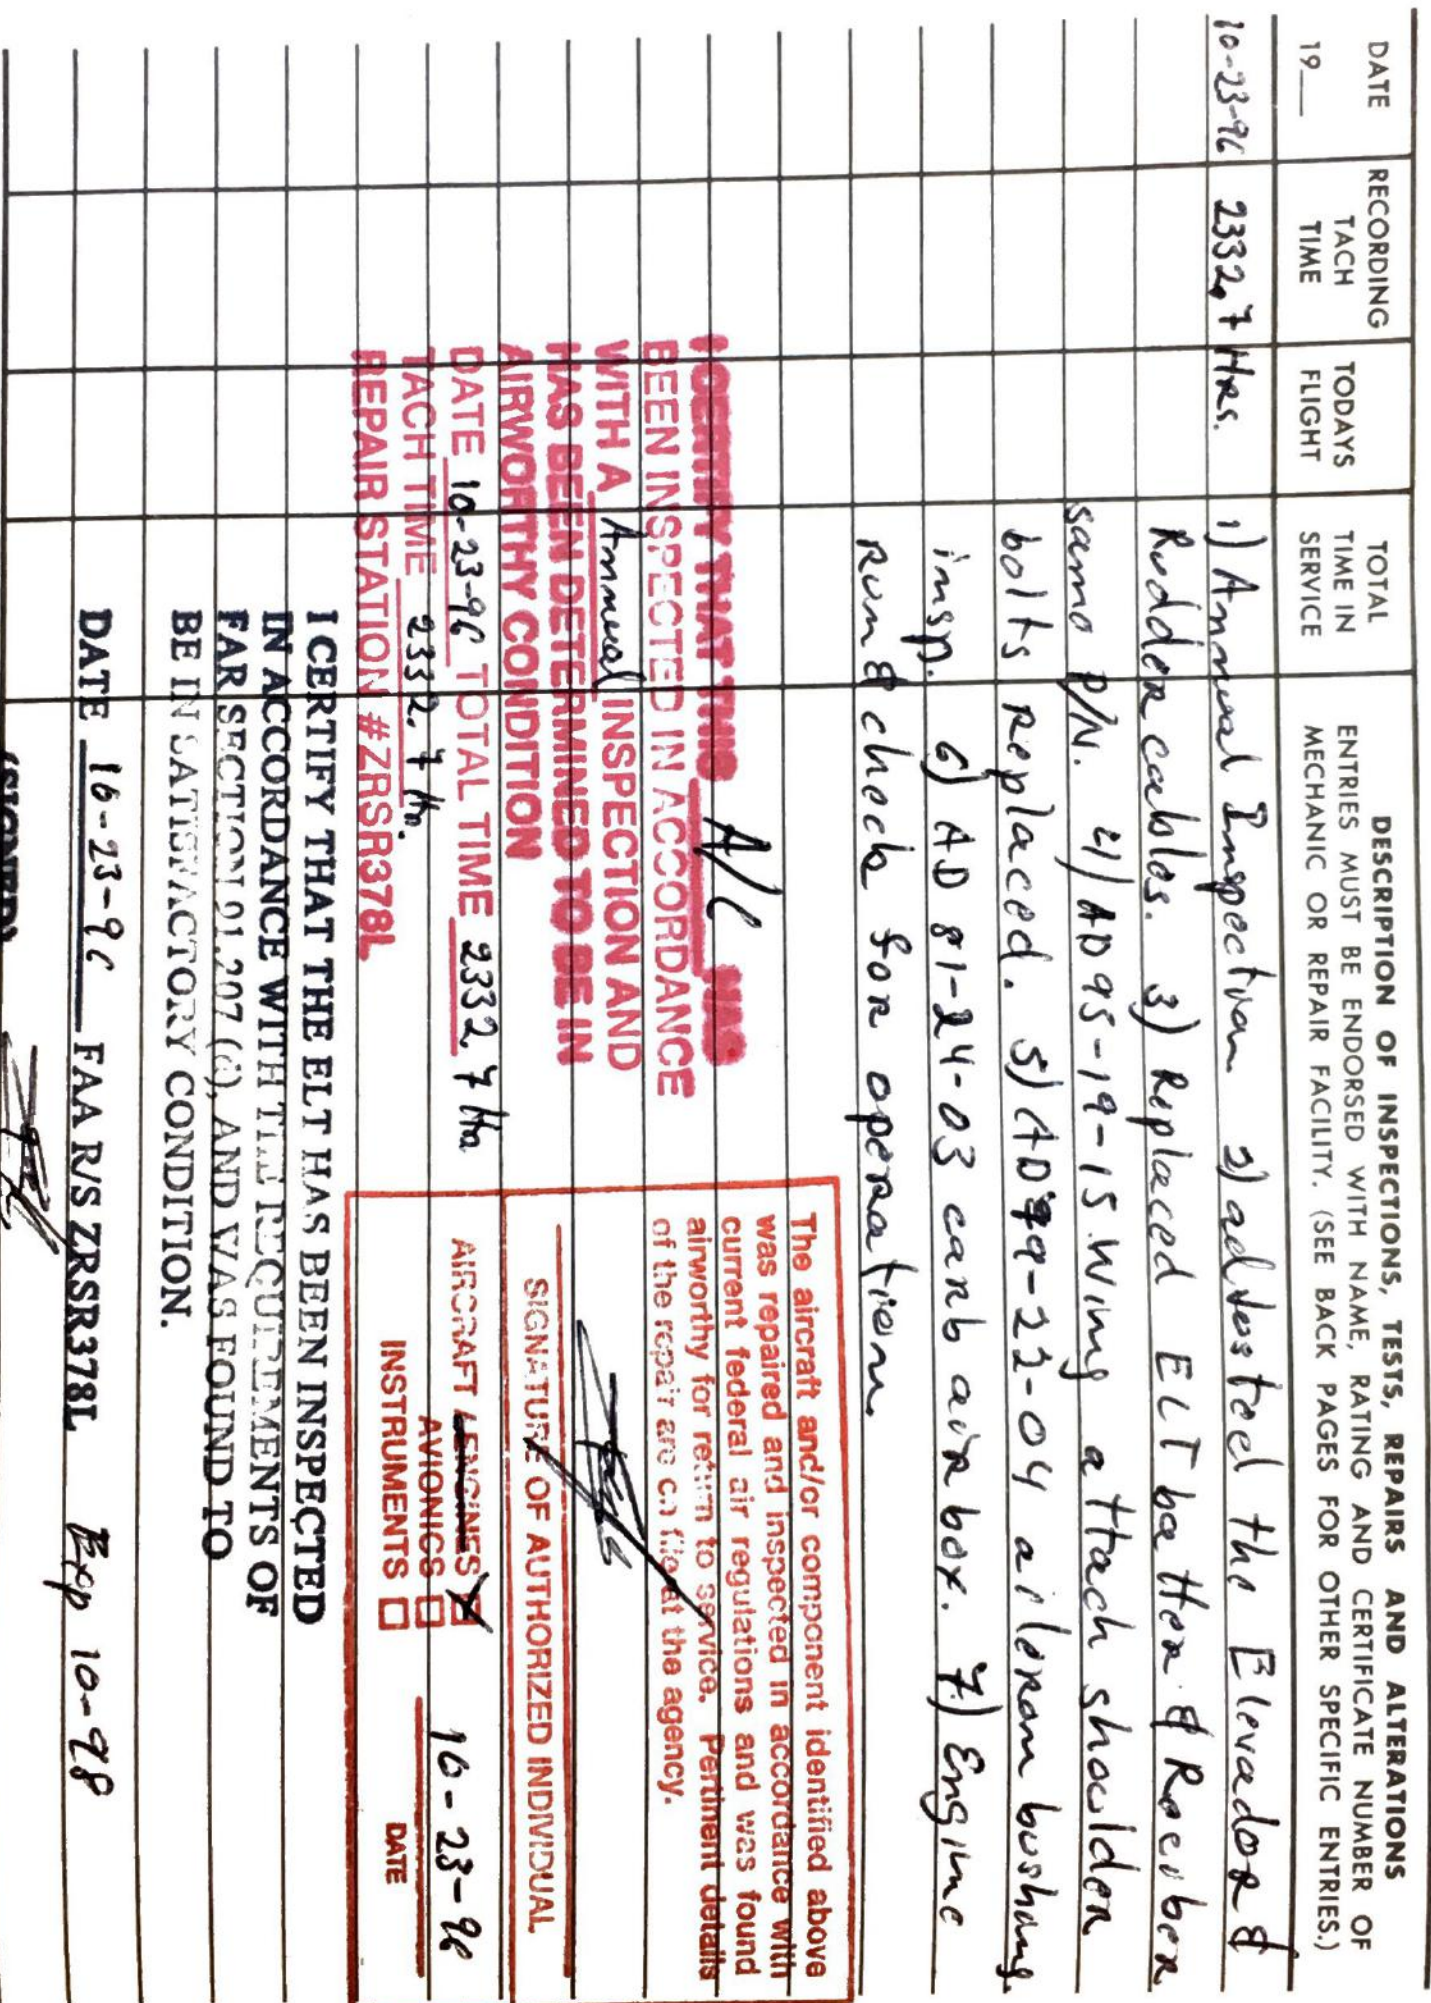 DATE
19__
RECORDING
TACH
TIME
TODAYS
FLIGHT
TOTAL
TIME IN
SERVICE
DESCRIPTION OF INSPECTIONS, TESTS, REPAIRS AND ALTERATIONS
ENTRIES MUST BE ENDORSED WITH NAME, RATING AND CERTIFICATE NUMBER OF
MECHANIC OR REPAIR FACILITY. (SEE BACK PAGES FOR OTHER SPECIFIC ENTRIES.)
10-23-96 2332.7 Hrs. 1) Annual Inspection 2) adjusted the Elevador &
Rudder cables. 3) Replaced ELT batter & Raciber
same P/N. 4) AD 95-19-15 Wing attach shoulder
bolts replaced. 5) AD 79-22-04 aileron bushing
insp. 6) AD 81-24-03 carb air box. 7) Engine
run & check for operation.
I CERTIFY THAT THIS A/C HAS
BEEN INSPECTED IN ACCORDANCE
WITH A Annual INSPECTION AND
HAS BEEN DETERMINED TO BE IN
AIRWORTHY CONDITION
DATE 10-23-96 TOTAL TIME 2332.7 Hr
TACH TIME 2332.7 Hr.
REPAIR STATION #ZRSR378L
The aircraft and/or component identified above
was repaired and inspected in accordance with
current federal air regulations and was found
airworthy for return to service. Pertinent details
of the repair are on file at the agency.
SIGNATURE OF AUTHORIZED INDIVIDUAL
AIRCRAFT ENGINES
AVIONICS
INSTRUMENTS
10-23-96
DATE
I CERTIFY THAT THE ELT HAS BEEN INSPECTED
IN ACCORDANCE WITH THE REQUIREMENTS OF
FAR SECTION 91.207 (d), AND WAS FOUND TO
BE IN SATISFACTORY CONDITION.
DATE 10-23-96 FAA R/S ZRSR378L Exp 10-98
(SIGNED)